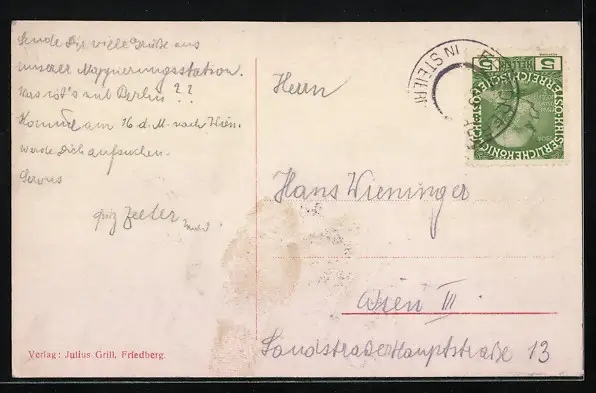 Sende Dir viele Grüße aus
unserer Mappierungsstation.
Was ist's mit Berlin??
Komme am 16 d. M. nach Wien.
werde Dich aufsuchen.
Servus
Fritz
Herrn
Hans Wieninger
Wien III.
Landstraßer Hauptstraße 13
Verlag: Julius Grill, Friedberg.
IN STEIER
5 HELLER 5
KAISERLICHE KÖNIGLICHE ÖSTERREICHISCHE POST